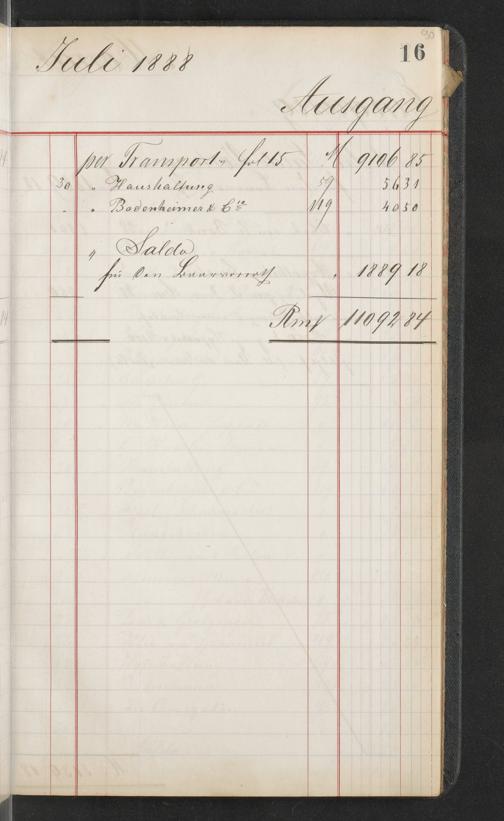 16
Juli 1888
Ausgang
per Transport v. fol 15 M 9106 85
30 " Haushaltung 59 56 31
" " Bodenheimer & Cie 119 40 50
" Saldo
für den Baarvorrath " 1889 18
Rm 11092 84